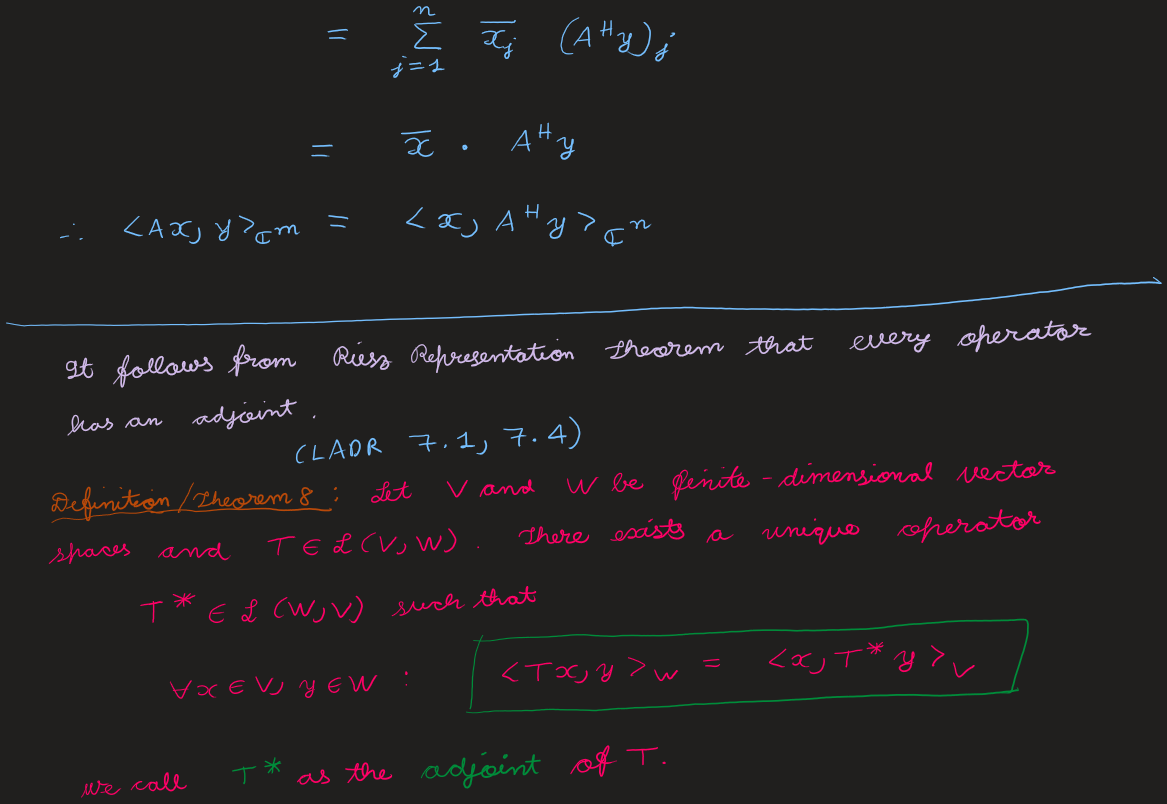 = n Σ j=1 x̄ⱼ (Aᴴy)ⱼ
= x̄ · Aᴴy
∴ <Ax, y>ℂm = <x, Aᴴy>ℂn
It follows from Riesz Representation Theorem that every operator
has an adjoint.
(LADR 7.1, 7.4)
Definition/Theorem 8 : Let V and W be finite-dimensional vector
spaces and T ∈ ℒ(V, W). There exists a unique operator
T* ∈ ℒ(W, V) such that
∀x ∈ V, y ∈ W : <Tx, y>W = <x, T*y>V
we call T* as the adjoint of T.